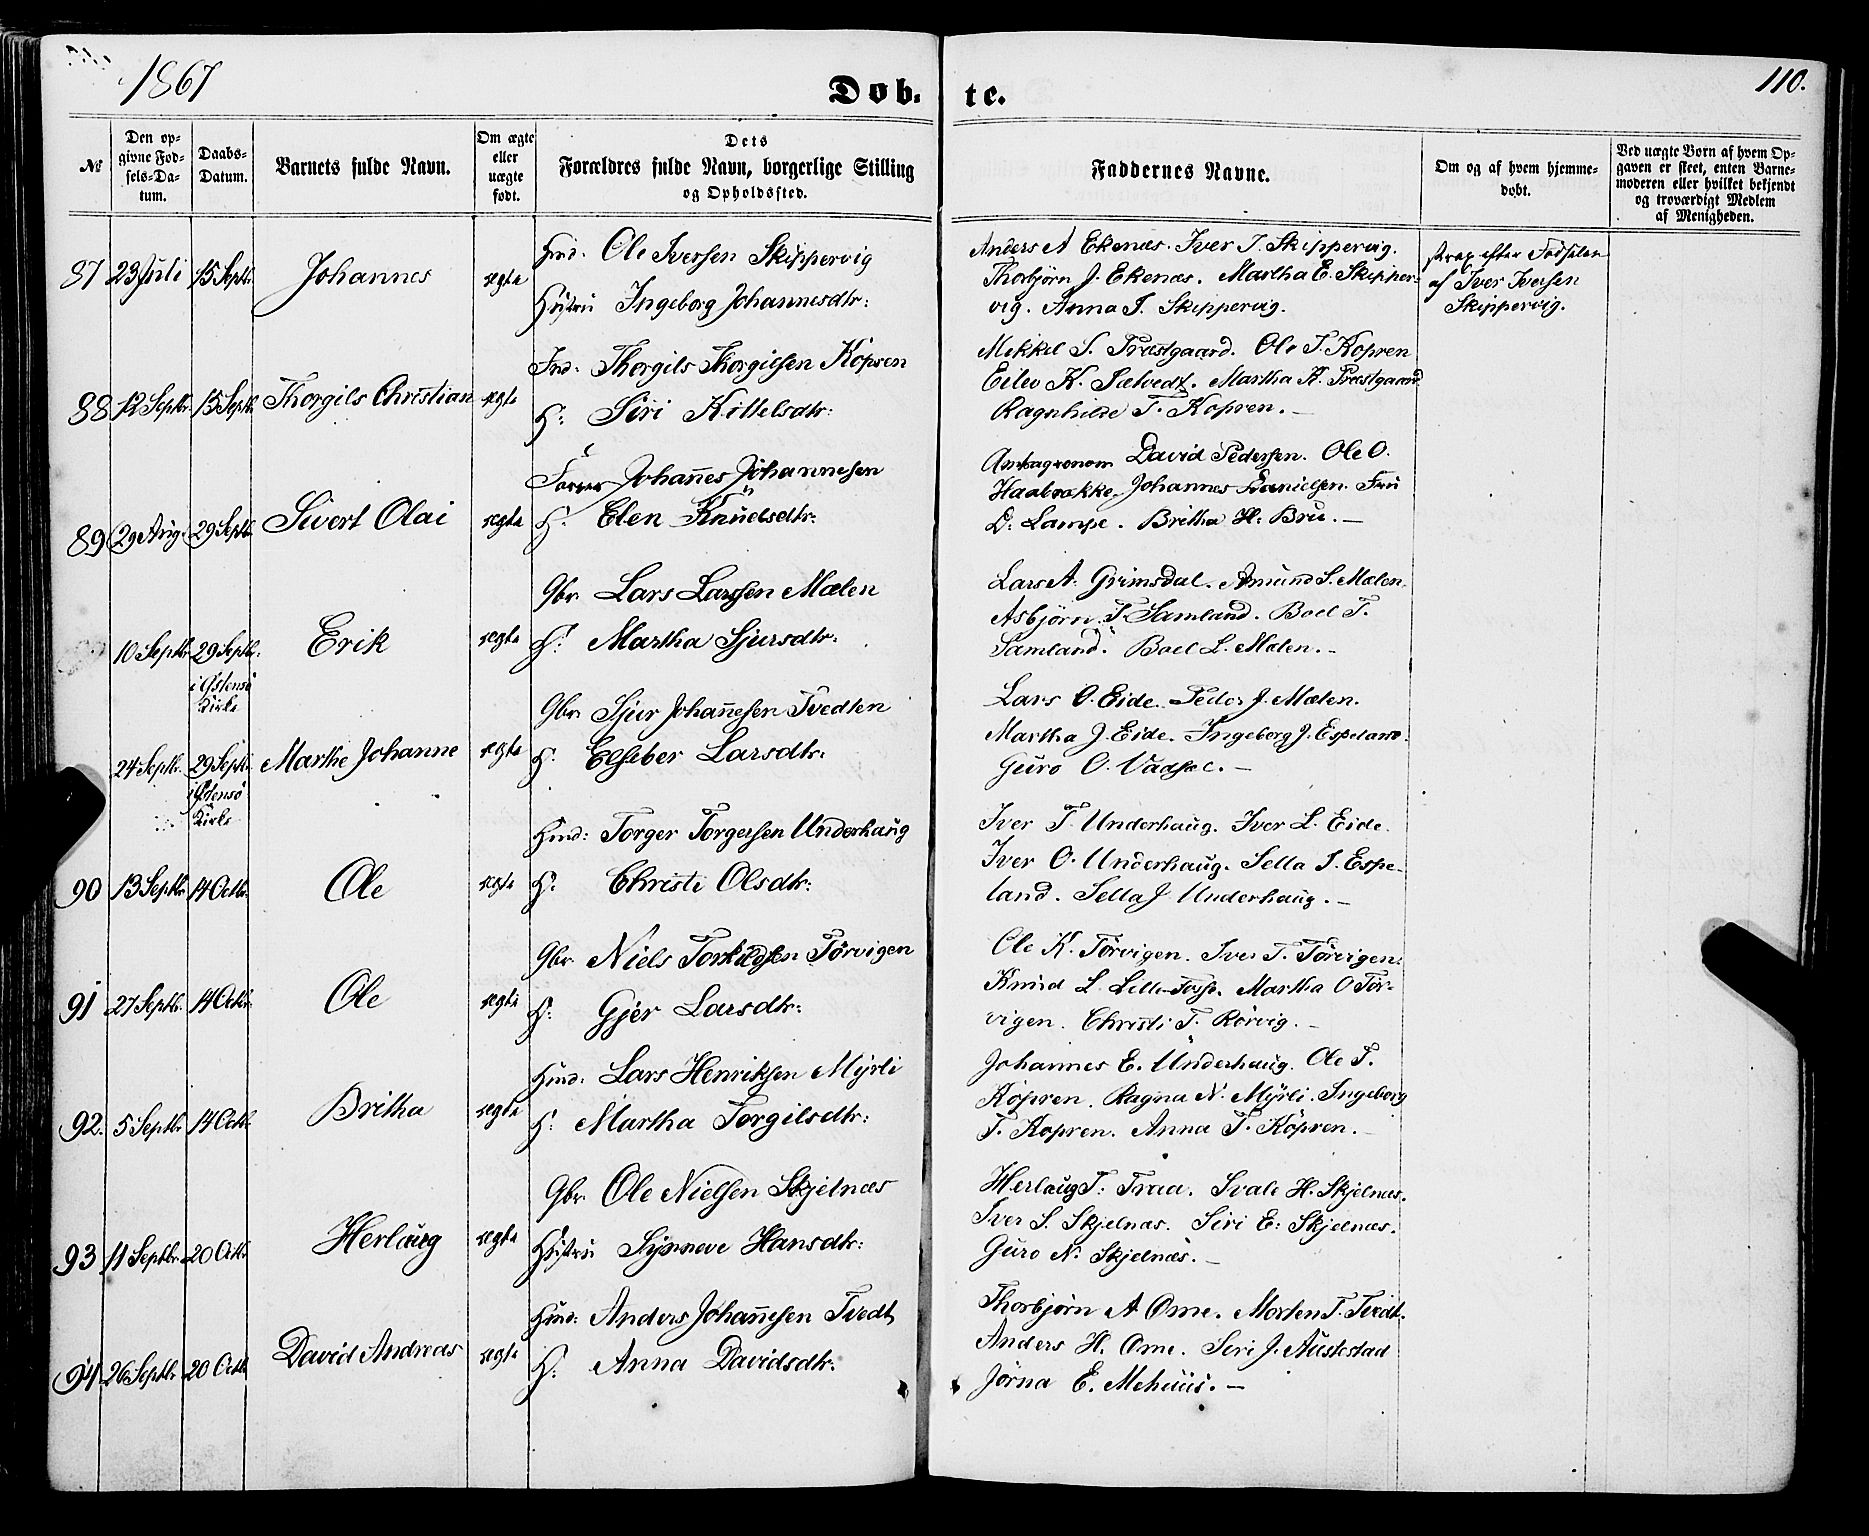 1867
Døb-
te.
110.
№
Den op-
givne Fød-
sels-Da-
tum.
Daabs-
Datum.
Barnets fulde Navn.
Om ægte
eller
uægte
født.
Dets
Forældres fulde Navn, borgerlige Stilling
og Opholdssted.
Faddernes Navne.
Om og af hvem hjemme-
døbt.
Ved uægte Børn af hvem Op-
gaven er skeet, enten Barne-
moderen eller hvilket bekjendt
og troværdigt Medlem
af Menigheden.
87 23 Juli 15 Septb. Johannes ægte
Huusmd. Ole Iversen Skippervig
Hustru Ingeborg Johannesdtr:
Anders A Ekenæs. Iver I. Skippervig.
Thorbjörn J. Ekenæs. Martha E. Skipper-
vig. Anna I. Skippervig.
strax efter Födselen
af Iver Iversen
Skippervig.
88 12 Septbr. 15 Septb. Thorgils Christian ægte
Ind: Thorgils Thorgilsen Kopren
H: Siri Kittelsdtr:
Mikkel S. Præstgaard. Ole T. Kopren
Eilev K. Sælvedt. Martha K. Præstgaard
Ragnhilde T. Kopren. —
89 29 Aug. 29 Septb. Sivert Olai ægte
Johannes Johannesen
H. Elen Knudsdtr:
Amtagronom David Pedersen. Ole O.
Haabrække. Johannes Danielsen. Fru
D. Lampe. Britha H. Bru. —
10 Septbr. 29 Septbr.
i Östensö
Kirke
Erik ægte
Gbr. Lars Larssen Mælen
H: Martha Sjursdtr:
Lars A. Grimsdal. Amund S. Mælen.
Asbjörn T. Samland. Boel T.
Samland. Boel L. Mælen. -
24 Septbr. 29 Septb.
i Östensö
Kirke
Marthe Johanne ægte
Gbr. Sjur Johannesen Tvedten
H. Elseber Larsdtr:
Lars O. Eide. Peder J. Mælen.
Martha J. Eide. Ingeborg J. Espeland.
Guro O. Vadsel. —
90 13 Septbr. 14 Octbr. Ole ægte
Huusmd: Torger Torgersen Underhaug
H: Christi Olsdtr:
Iver T. Underhaug. Iver L. Eide.
Iver O. Underhaug. Sella I. Espe-
land. Sella J. Underhaug. —
91 27 Septbr. 14 Octbr. Ole ægte
Gbr. Niels Torkildsen Törvigen
H: Gjer Larsdtr:
Ole K. Törvigen. Iver T. Törvigen.
Knud L. Lille-Tosse. Martha O Tör-
vigen. Christi T. Rörvig. -
92. 5 Septbr. 14 Octb. Britha ægte
Huusmd: Lars Henriksen Myrli
H: Martha Torgilsdtr:
Johannes E. Underhaug. Ole T.
Kopren. Ragna N. Myrli. Ingeborg
T. Kopren. Anna T. Kopren. -
93 11 Septbr. 20 Octb. Herlaug ægte
Gbr. Ole Nielsen Skjelnæs
Hustru Synneve Hansdtr:
Herlaug T: Traa. Svale H. Skjelnæs.
Iver S. Skjelnæs. Siri E: Skjelnæs.
Guro N. Skjelnæs. -
94 26 Septbr. 20 Octb. David Andreas ægte
Huusmd: Anders Johannesen Tvedt
H: Anna Davidsdtr:
Thorbjörn A Ome. Morten T. Tvedt.
Anders H. Ome. Siri J. Austestad
Jörna E. Mehuus. —